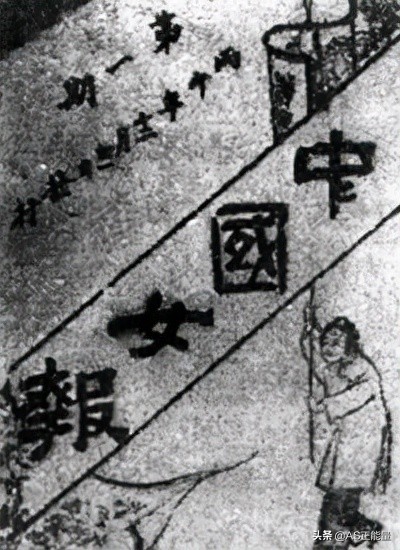 第一期
丙午年十二月
中國女報
头条 @AS正能量